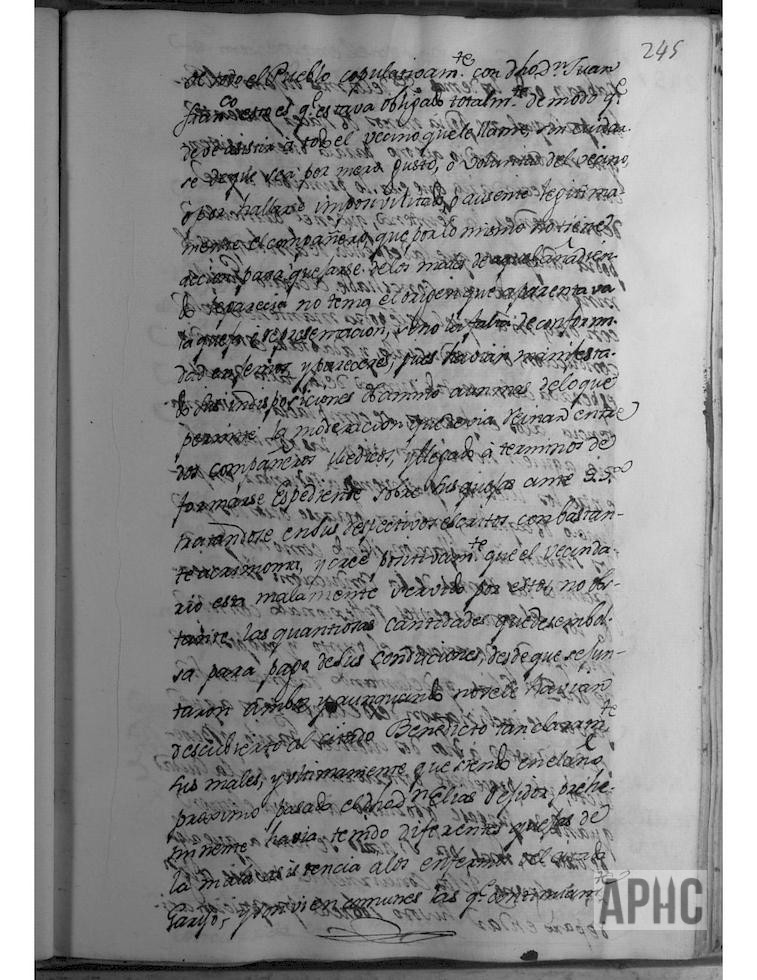 245
de todo el Pueblo copulativam.te con dho D.n Juan
Fran.co este es q.e estava obligado totalm.te de modo q.e
de de asistir à todo el vecino que le llame, sin cuidar
se de que sea por mera gusto, o voluntad del vecino,
o por hallarse imposivilitado, o ausente lexitima
mente el compañero, que por lo mismo no tiene
accion para quejarse de los males de
do le parecia no tenia el origen que aparentava
la queja i representacion, sino la falta de conformi
dad en jenios, y pareceres, pues havian manifesta
do sus indisposiciones de animo aun mas de lo que
permite la moderacion que devia reinar entre
dos compañeros Medicos, y llegado à terminos de
formarse Espediente sobre sus quejas ante S.S.ria
tratandose en sus respectivos escritos con bastan-
te acrimonia, y cree positivam.te que el vecinda-
rio esta malamente servido por estos, no obs-
tante las quantiosas cantidades que desembol-
sa para pago de sus conduciones, desde que se jun-
taron ambos, y aunquando no se le havian
descubierto al citado Benedicto tan claram.te
sus males, y ultimamente que siendo en el año
proximo pasado el D.n Elias Rejidor prehe-
minente havia tenido diferentes quejas de
la mala asistencia a los enfermos del citado
Garijo, y son vien comunes las q.e continuam.te
APHC